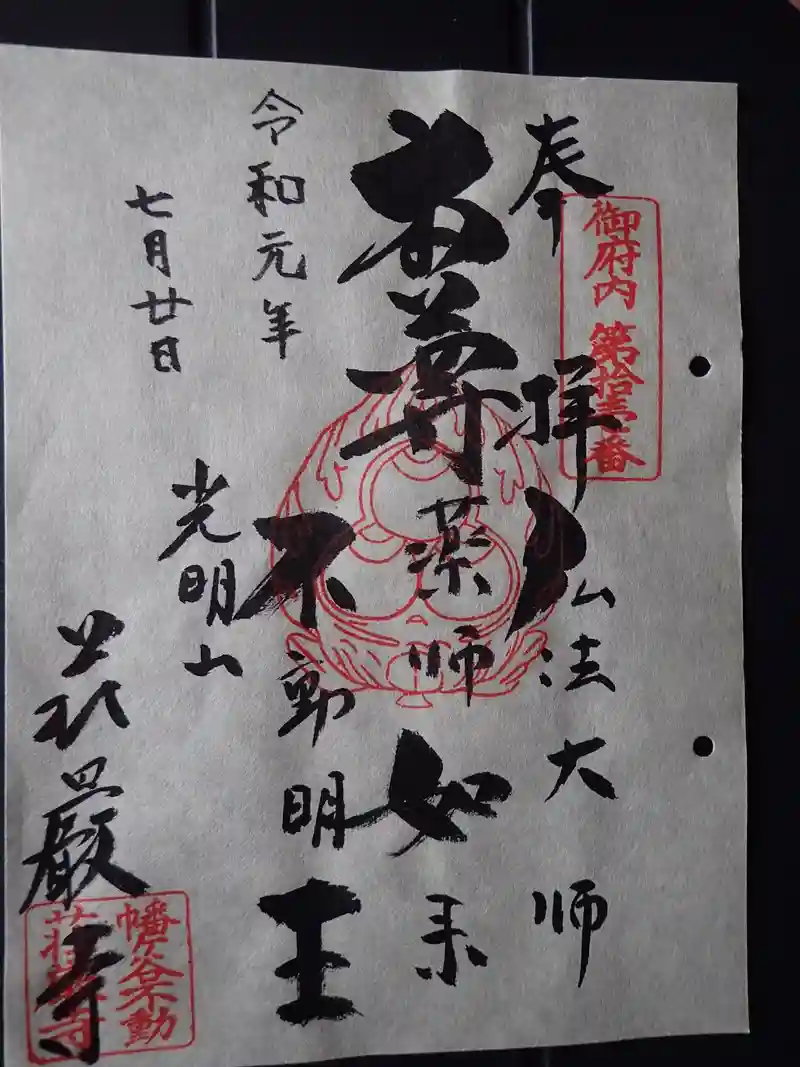 御府内 第拾壱番
奉拝 弘法大師
本尊 薬師如来
不動明王
令和元年
七月廿日
光明山
荘嚴寺
幡ヶ谷不動
荘厳寺